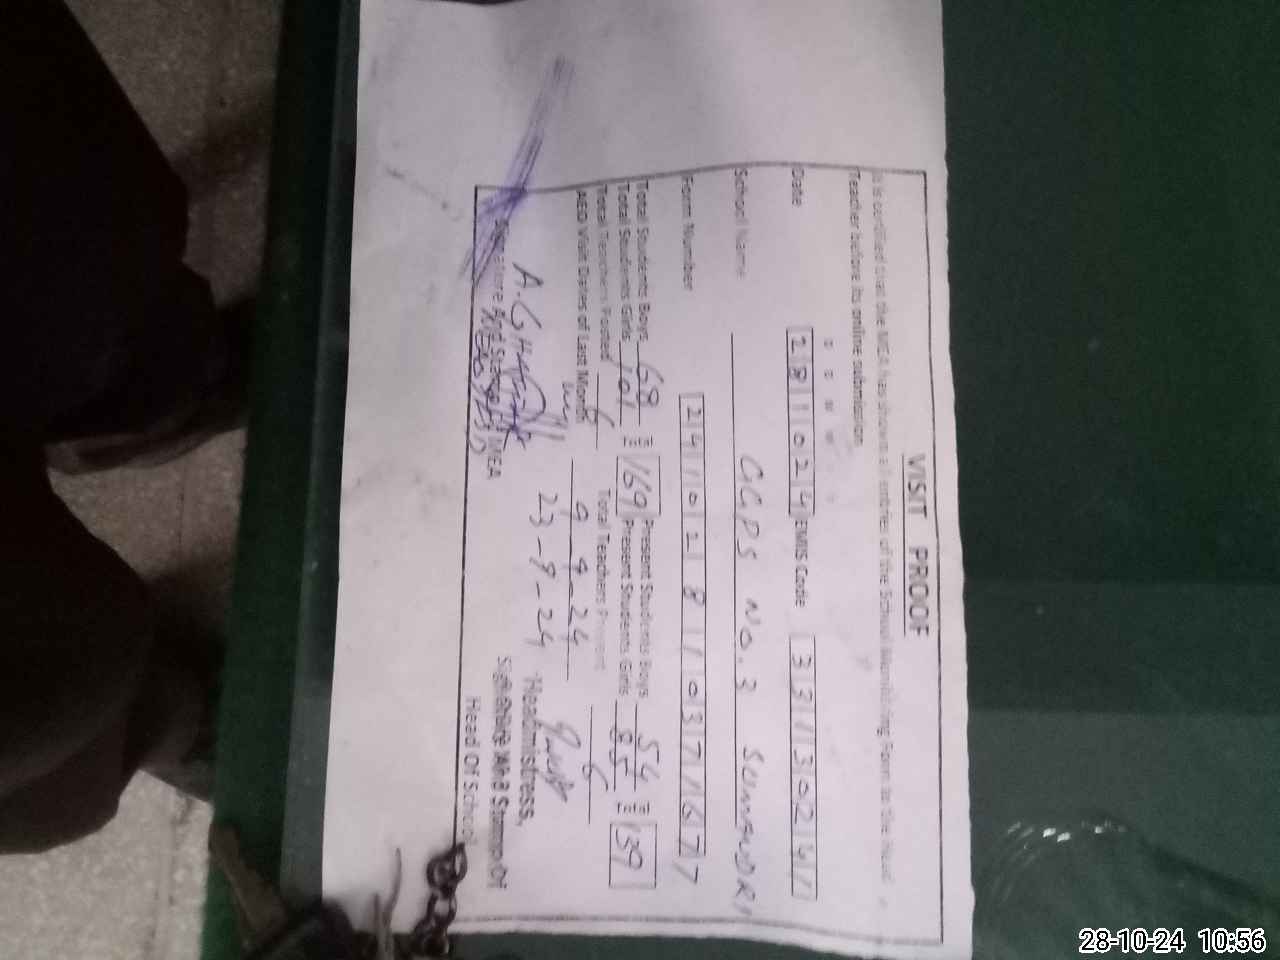 VISIT PROOF
It is certified that the MEA has shown all entries of the School Monitoring Form to the Head
Teacher before its online submission
Date 281024 EMIS Code 33130241
School Name GGPS NO.3 SUMUNDRI
Form Number
Total Students Boys 68 Present Students Boys 54
Total Students Girls 101 169 Present Students Girls 85 139
Total Teachers Posted 6 Total Teachers Present 6
AEO Visit Dates of Last Month
23-9-24
Headmistress,
Signature And Stamp Of MEA
Head Of School
28-10-24 10:56